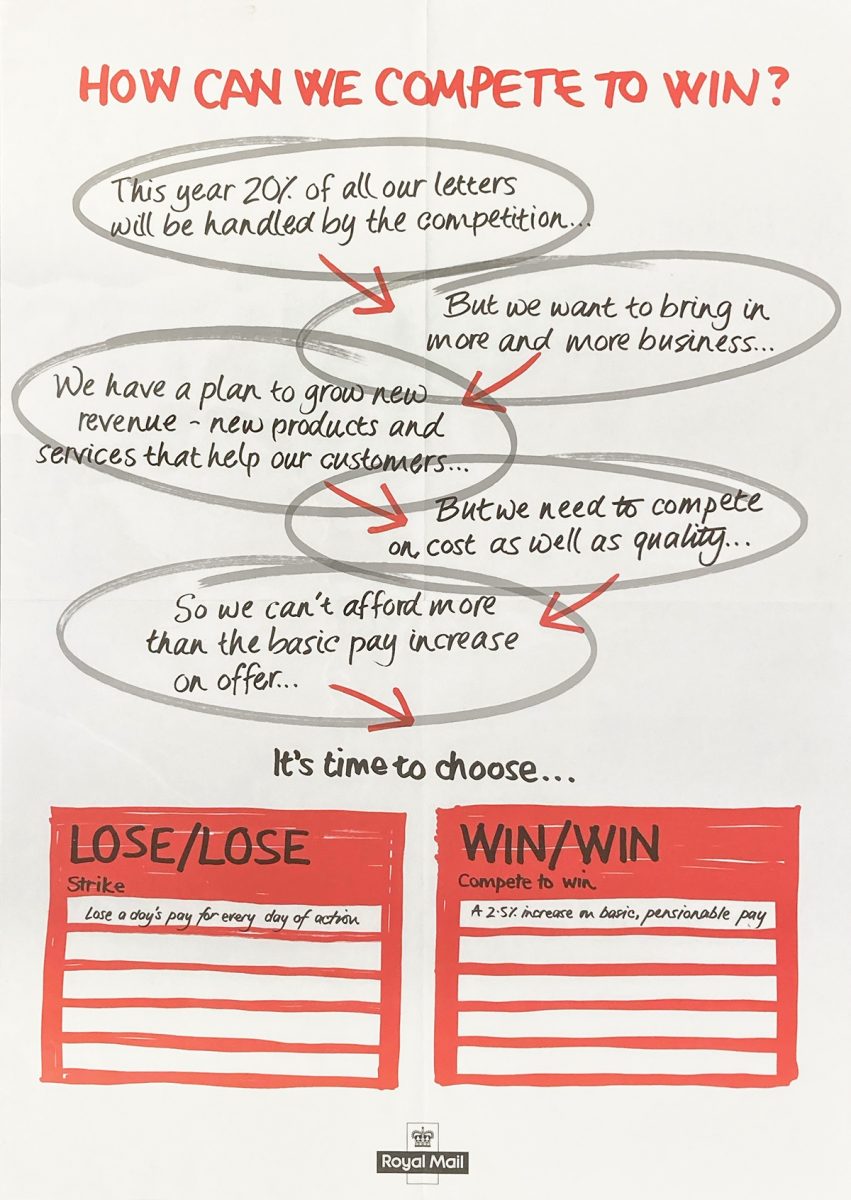 HOW CAN WE COMPETE TO WIN?
This year 20% of all our letters
will be handled by the competition...
But we want to bring in
more and more business...
We have a plan to grow new
revenue - new products and
services that help our customers...
But we need to compete
on cost as well as quality...
So we can't afford more
than the basic pay increase
on offer...
It's time to choose...
LOSE/LOSE
Strike
Lose a day's pay for every day of action
WIN/WIN
Compete to win
A 2.5% increase on basic, pensionable pay
Royal Mail